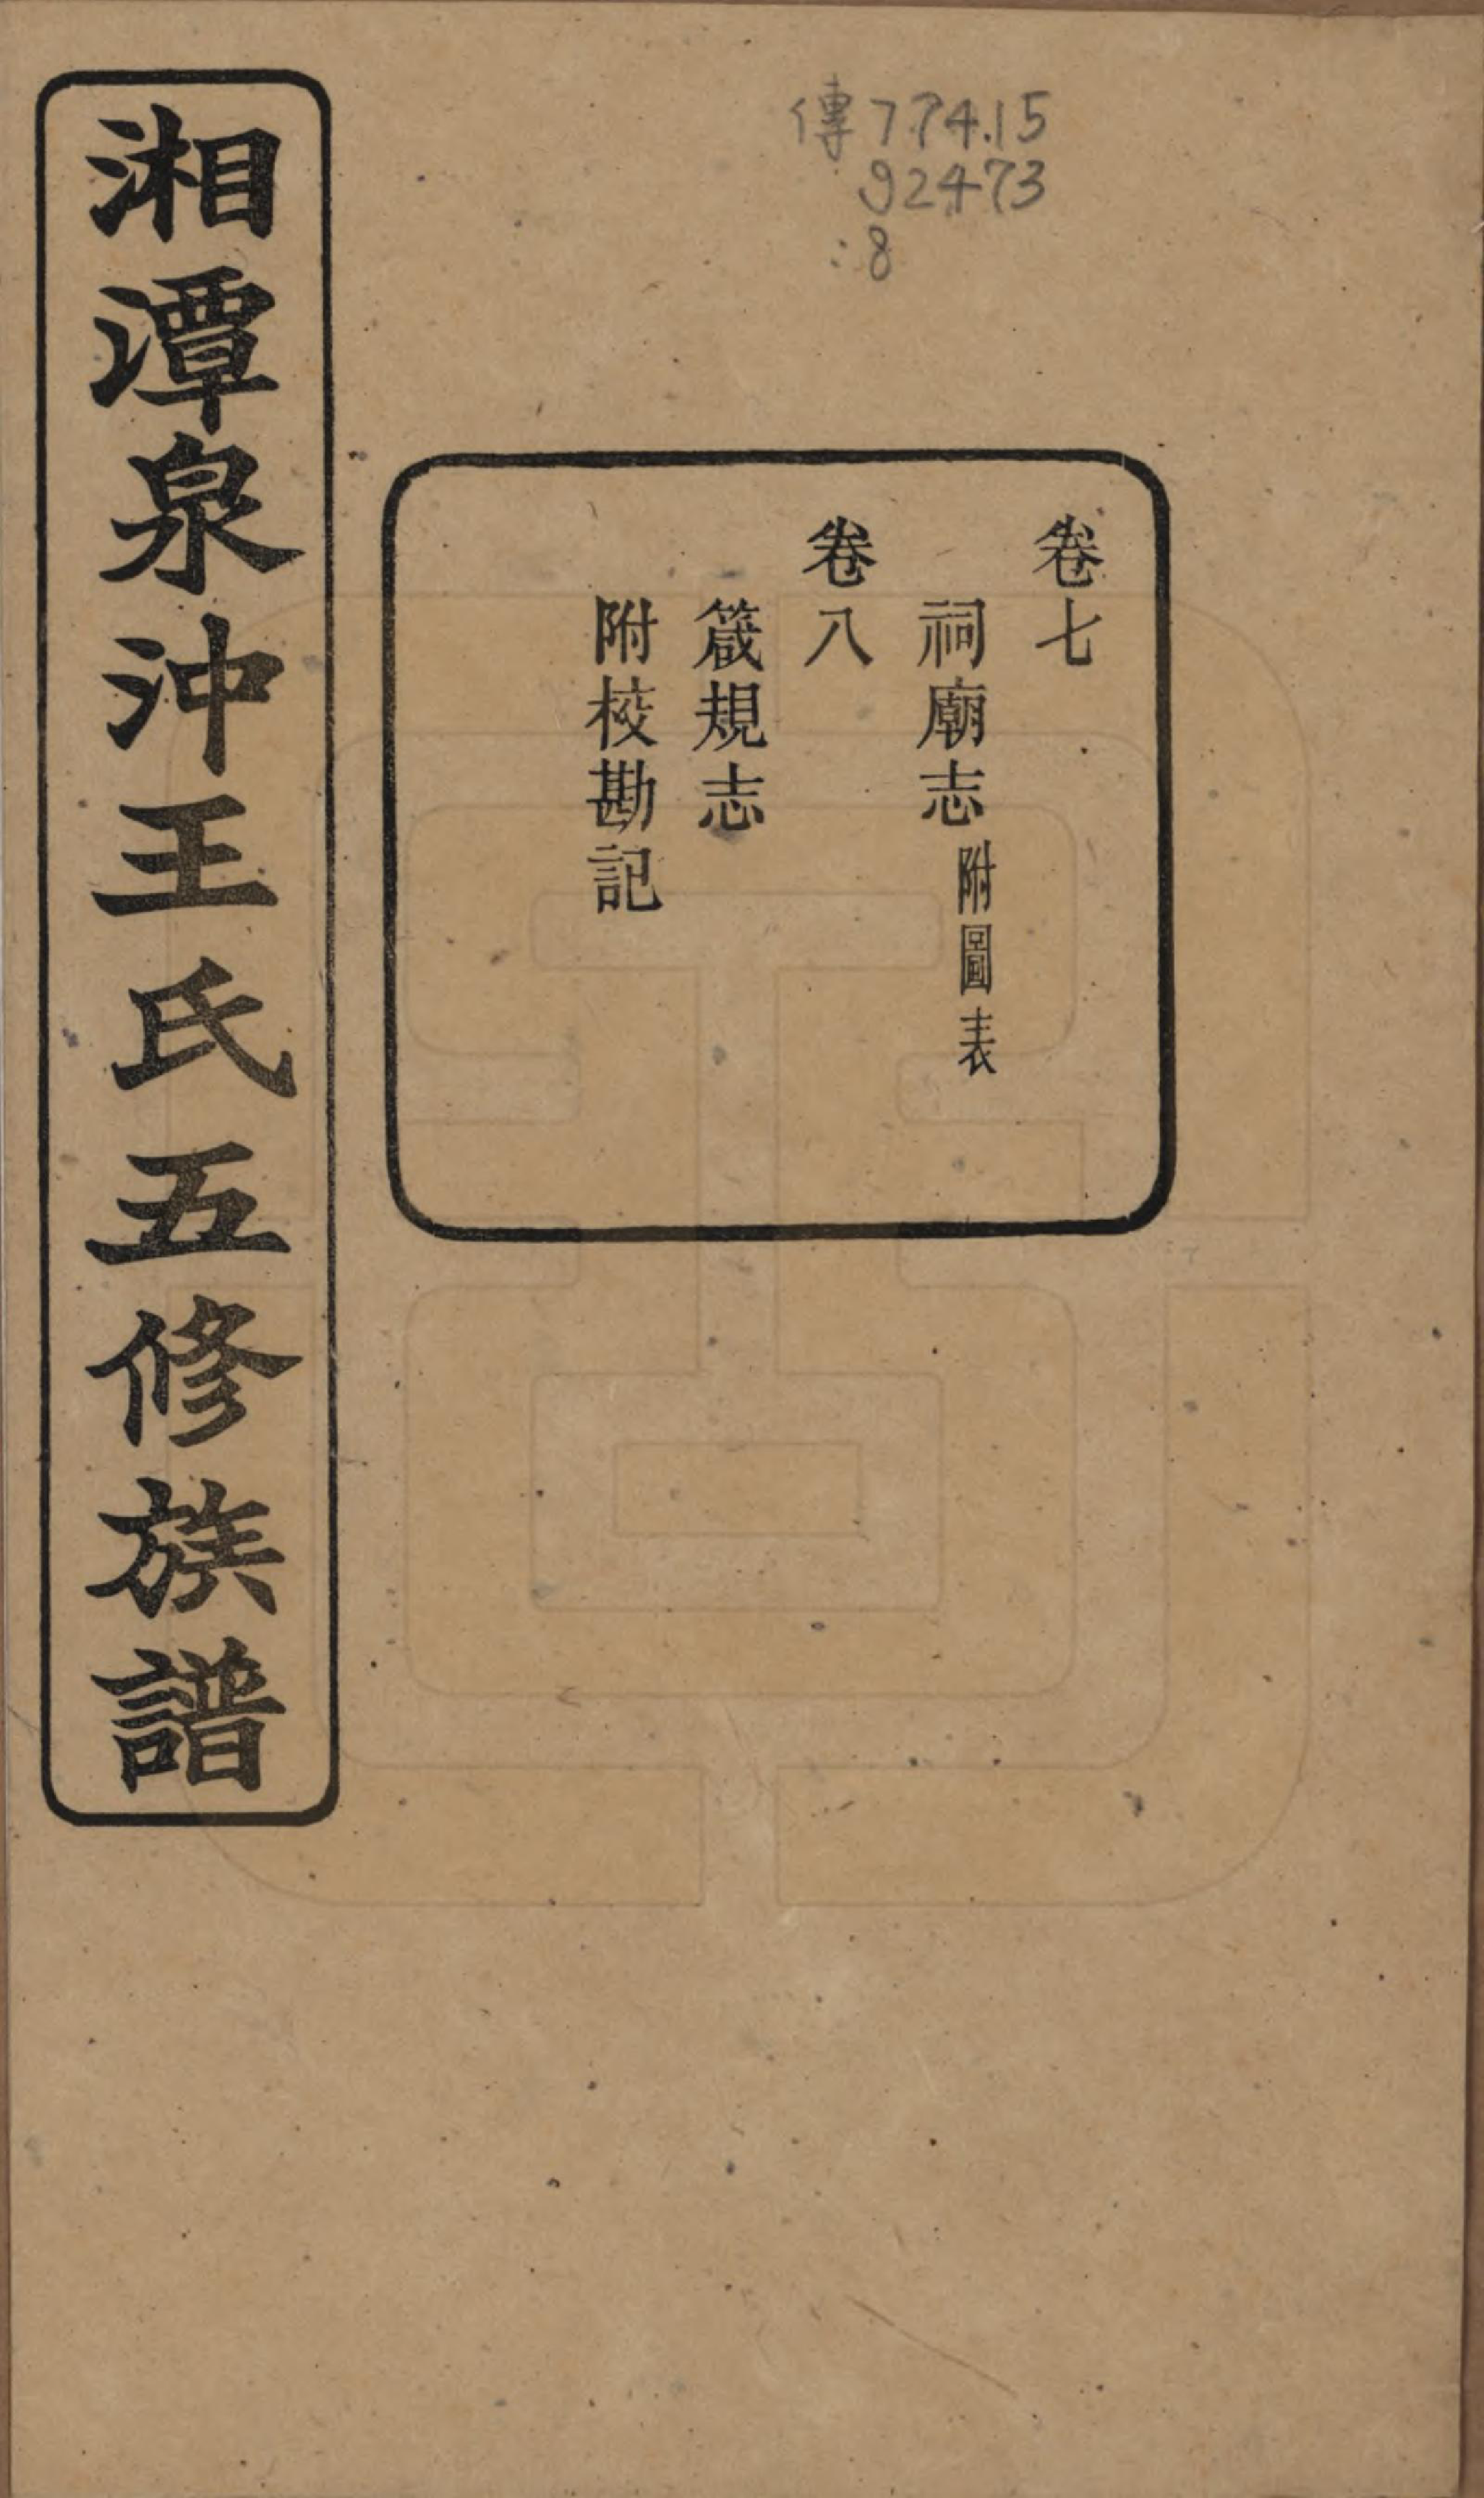 傳774.15
92473
:8
卷七
祠廟志附圖表
卷八
箴規志
附校勘記
湘潭泉沖王氏五修族譜